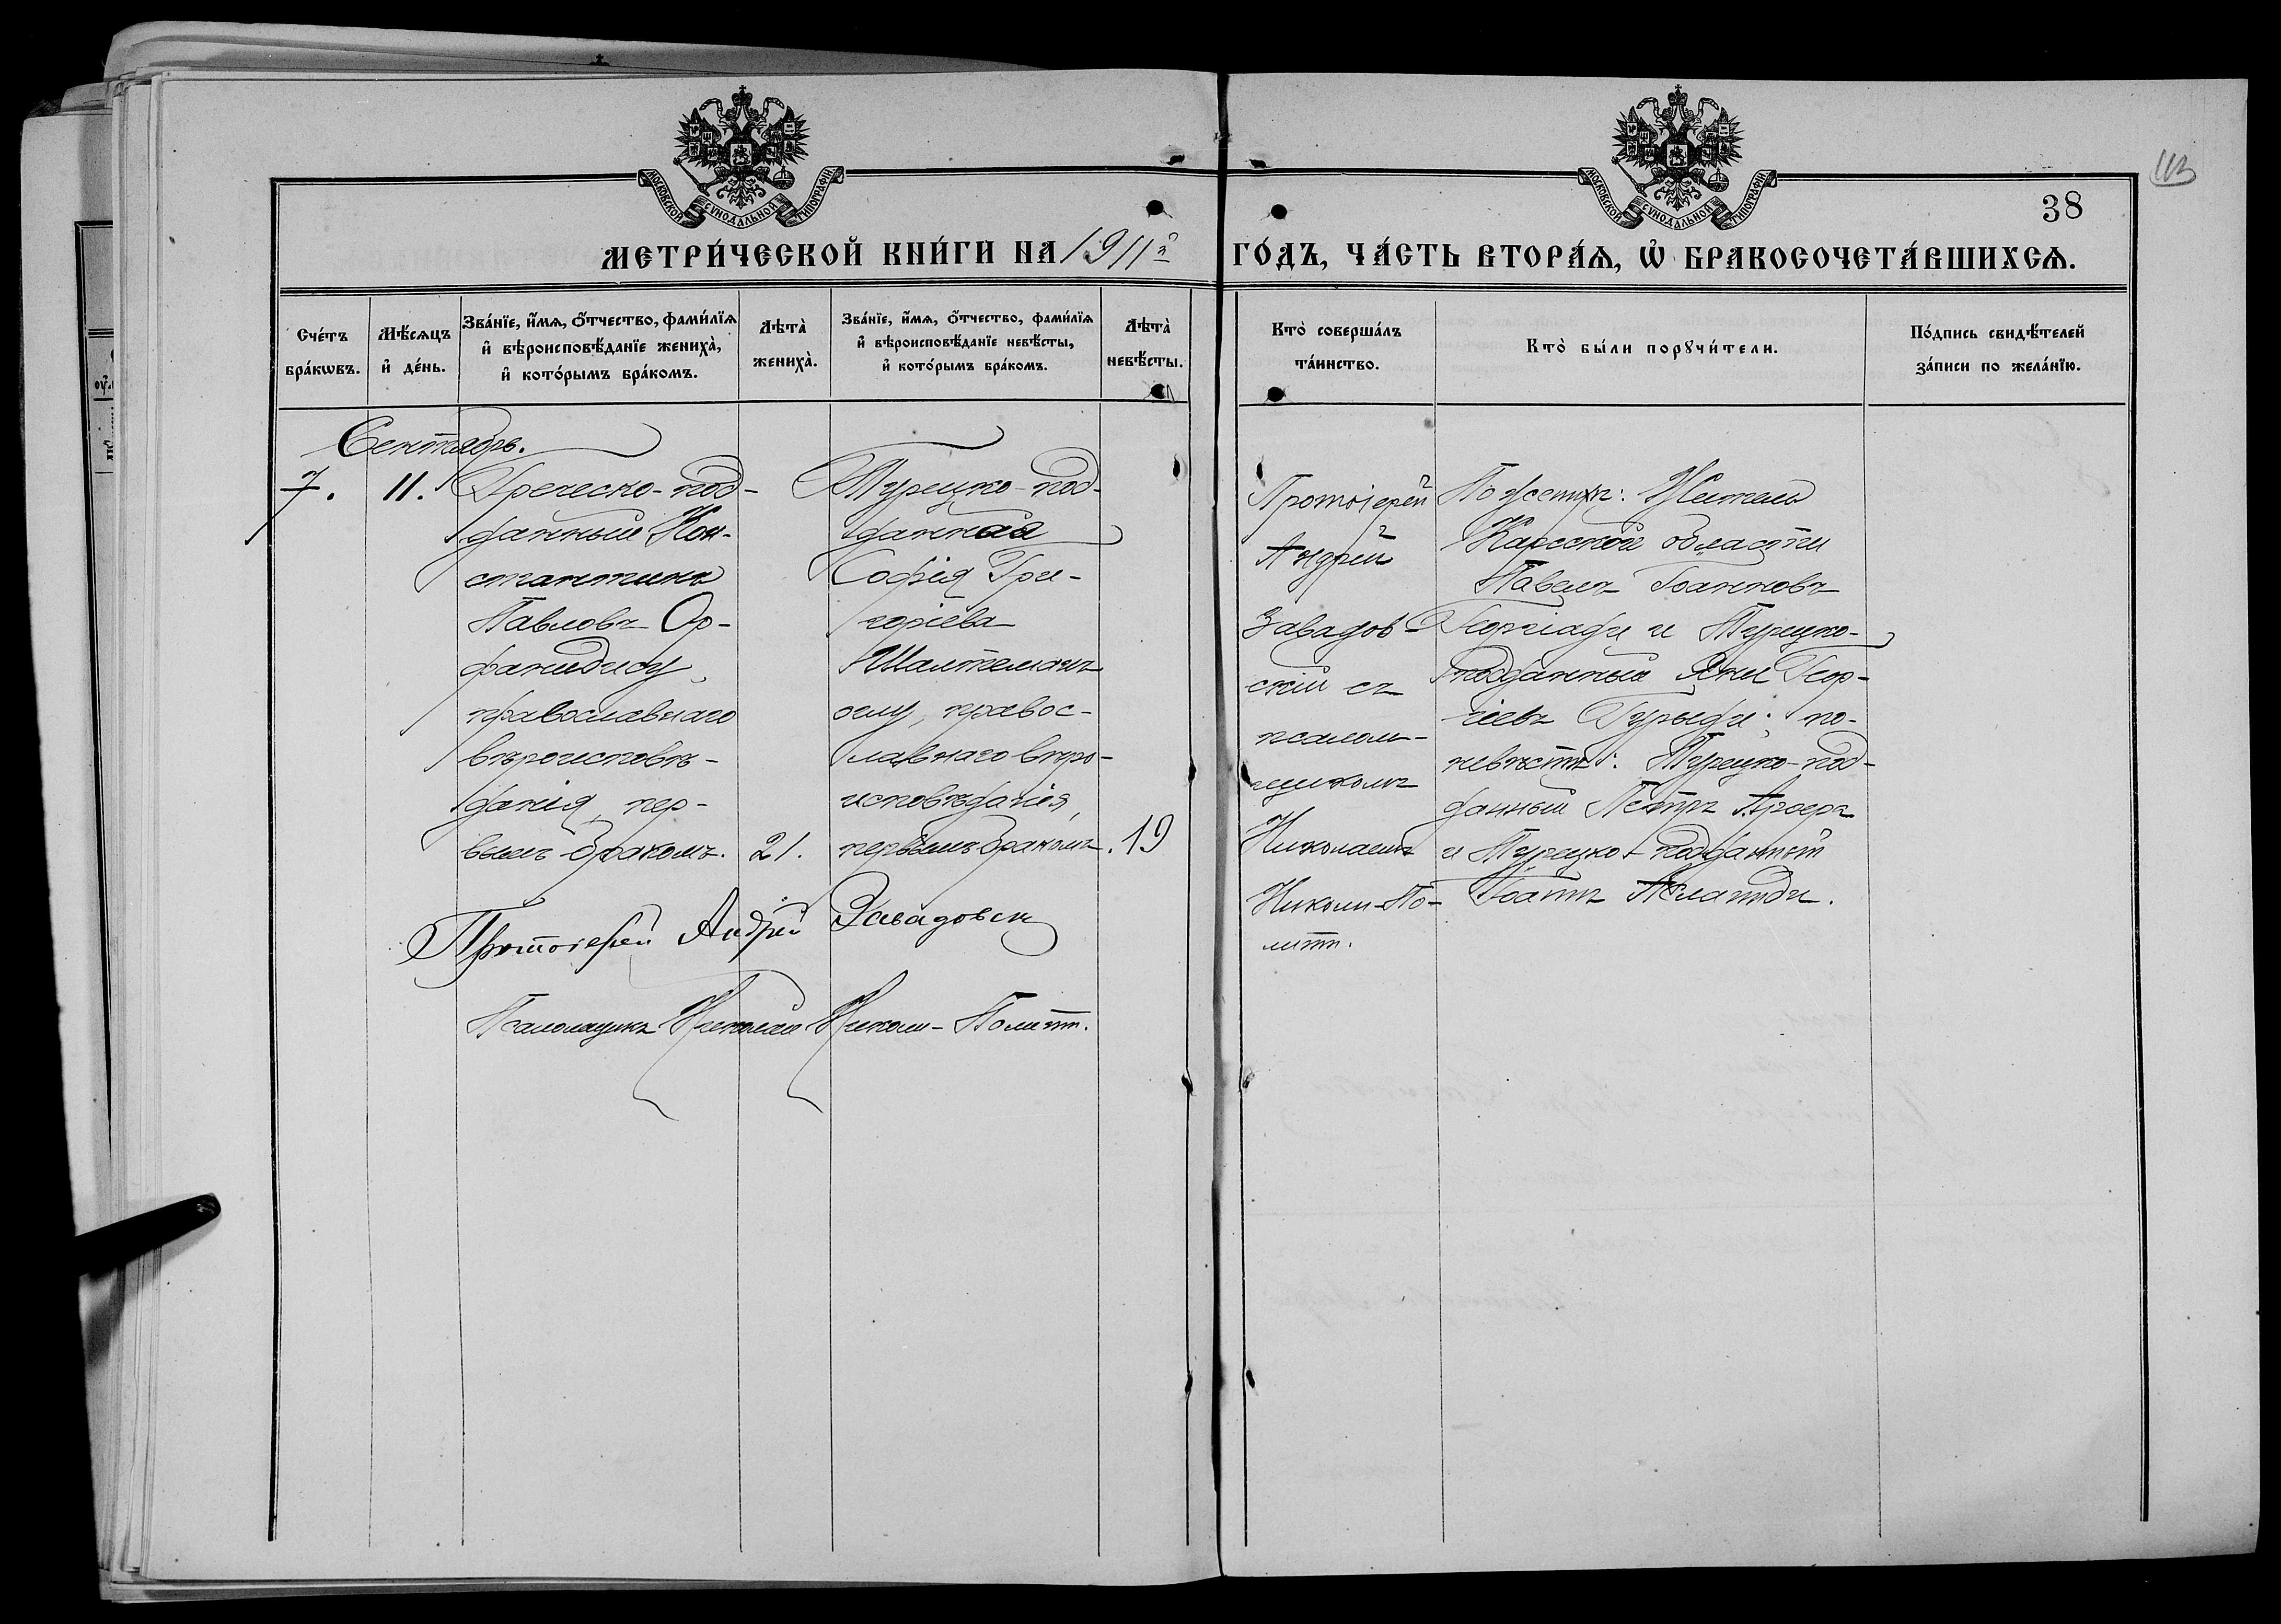 МОСКОВСКОЙ СѴНОДАЛЬНОЙ ТИПОГРАФІИ
МОСКОВСКОЙ СѴНОДАЛЬНОЙ ТИПОГРАФІИ
38
МЕТРИ́ЧЕСКОЙ КНИ́ГИ НА 1911 г. ГО́ДЪ, ЧА́СТЬ ВТОРА́Ѧ, Ѽ БРАКОСОЧЕТА́ВШИХСѦ.
Сче́тъ бра́кѡвъ.
Мѣ́сѧцъ и҆ де́нь.
Зва́нїе, и҆́мѧ, ѻ҆́тчество, фами́лїѧ
и҆ вѣроисповѣ́данїе жениха̀,
и҆ кото́рымъ бра́комъ.
Лѣта̀ жениха̀.
Зва́нїе, и҆́мѧ, ѻ҆́тчество, фами́лїѧ
и҆ вѣроисповѣ́данїе невѣ́сты,
и҆ кото́рымъ бра́комъ.
Лѣта̀ невѣ́сты.
Кто̀ соверша́лъ та́инство.
Кто̀ бы́ли порꙋчи́тели.
По́дпись свидѣ́телей за́писи по жела́нїю.
Сентябрь.
7.
11.
Греческо-под-
данный Кон-
стантинъ
Павловъ Ор-
фанидису,
православнаго
вѣроисповѣ-
данія, пер-
вымъ бракомъ.
21.
Турецко-под-
данная
Софія Гри-
горіева
оглу, правос-
лавнаго вѣро-
исповѣданія,
первымъ бракомъ.
19
Протоіерей
Андрей
Завадов-
скій съ
псалом-
щикомъ
Николаемъ
Николи-По-
литъ.
По женихѣ: Житель
Карсской области
Павелъ Іоанновъ
Георгіади и Турецко-
подданный Яни Геор-
гіевъ; по-
невѣстѣ: Турецко-под-
данный Петръ
и Турецко-подданный
Іоаннъ Аслатиди.
Протоіерей Андрей Завадовскі
Псаломщикъ Николай Николи-Политъ.